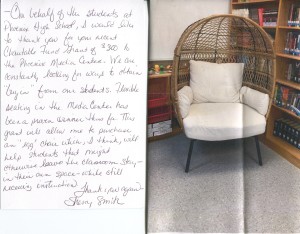 On behalf of the students at
Phoenix High School, I would like
to thank you for your recent
Charitable Fund Grant of $300 to
the Phoenix Media Center. We are
constantly looking for ways to obtain
"buy in" from our students. Flexible
seating in the Media Center has
been a proven winner thus far. This
grant will allow me to purchase
an "egg" chair which, I think, will
help students that might
otherwise leave the classroom stay -
in their own space - while still
receiving instruction.
Thank you again!
Sherry Smith